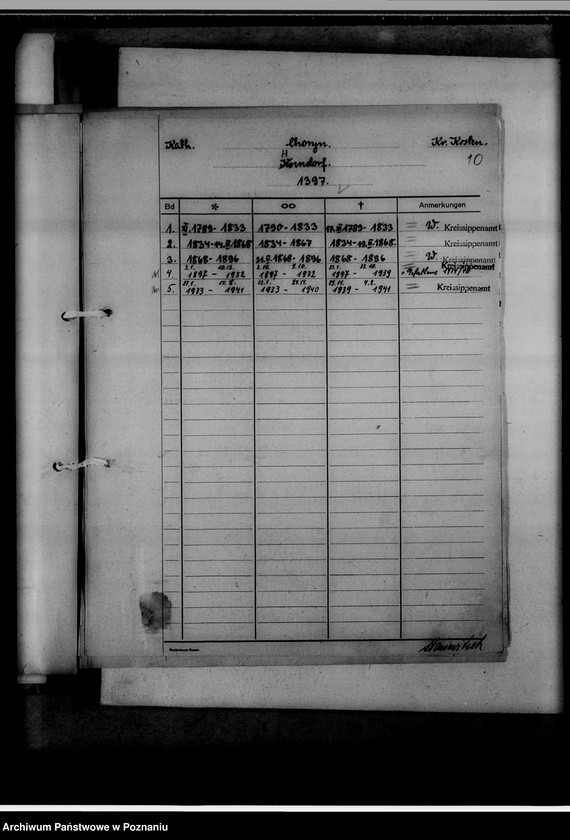 Kath. Choryn. Kr. Kosten.
Horndorf. 10
1397.
Bd * ∞ † Anmerkungen
1. V. 1789 - 1833 1790 - 1833 1789 - 1833 = W. Kreissippenamt
2. 1834 - 14. 1868 1834 - 1867 1834 - 1868. = Kreissippenamt
3. 1868 - 1896 1868 - 1896 1868 - 1896 = W. Kreissippenamt
4. 1897 - 1932 1897 - 1932 1897 - 1939 Kreissippenamt
5. 1933 - 1941 1933 - 1940 1939 - 1941 = Kreissippenamt
Archiwum Państwowe w Poznaniu